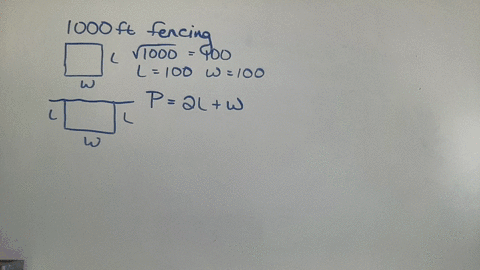 1000 ft fencing
L √1000 = 100
L = 100 W = 100
W
P = 2L + W
L L
W